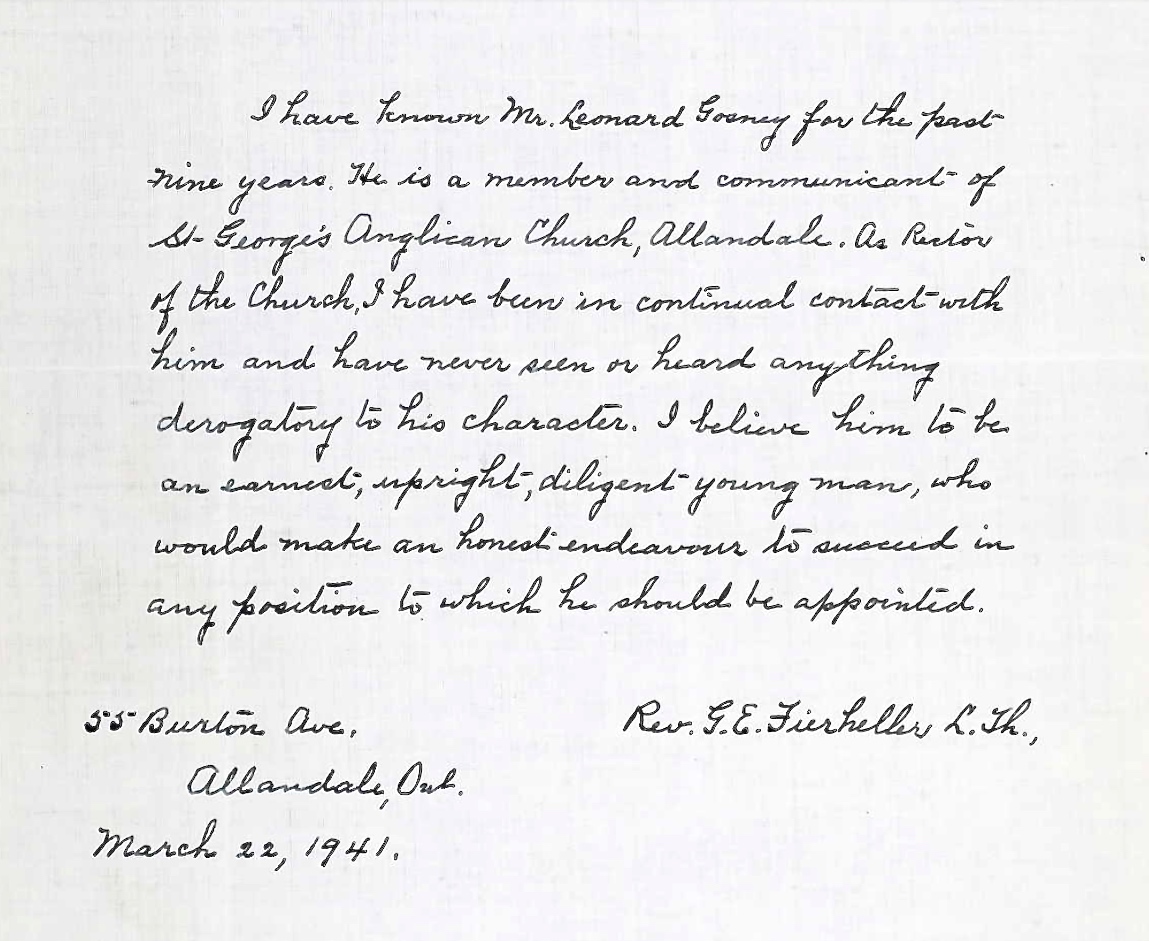 I have known Mr. Leonard Gosney for the past
nine years. He is a member and communicant of
St. George's Anglican Church, Allandale. As Rector
of the Church, I have been in continual contact with
him and have never seen or heard anything
derogatory to his character. I believe him to be
an earnest, upright, diligent young man, who
would make an honest endeavour to succeed in
any position to which he should be appointed.
55 Burton Ave,
Rev. G.E. Fierheller L.Th.,
Allandale, Ont.
March 22, 1941.